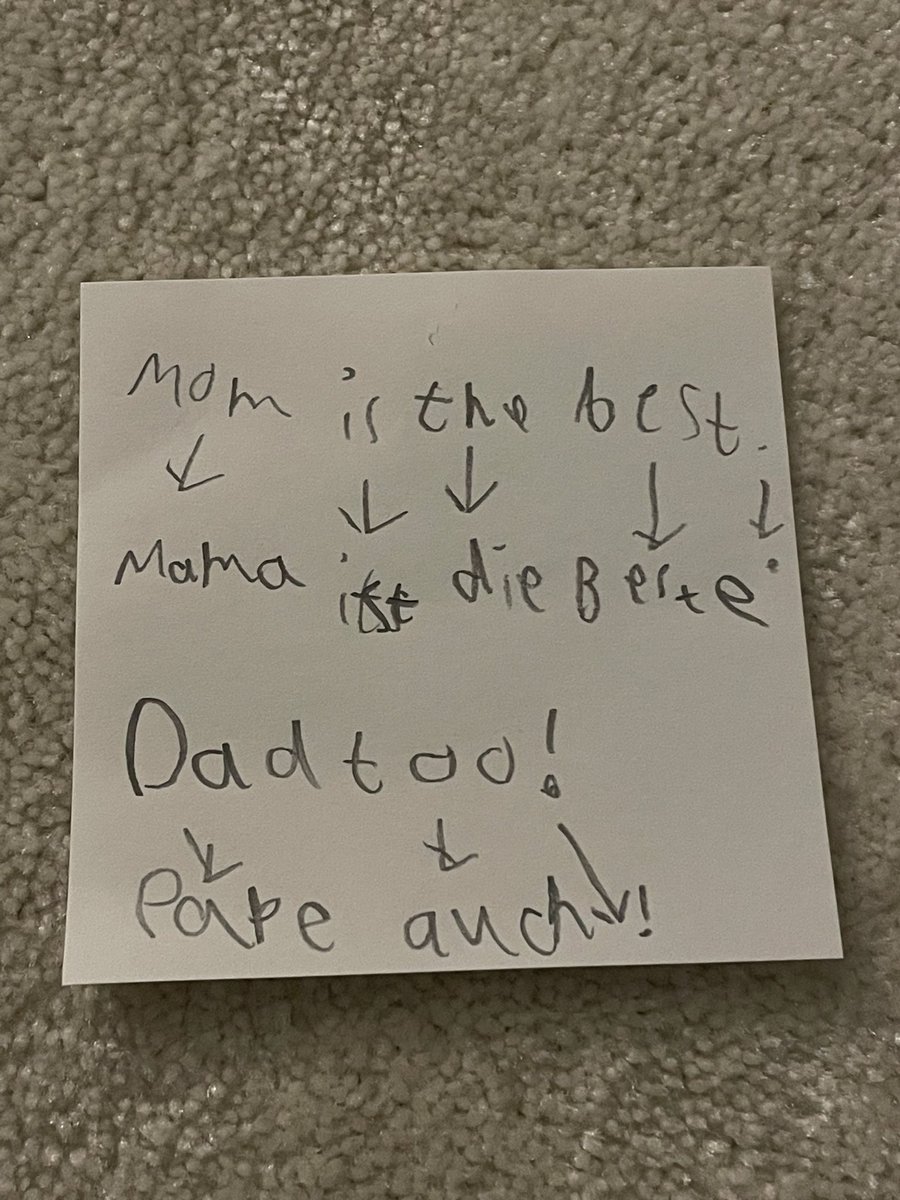 Mom is the best.
Mama ist die Beste.
Dad too!
Pape auch!